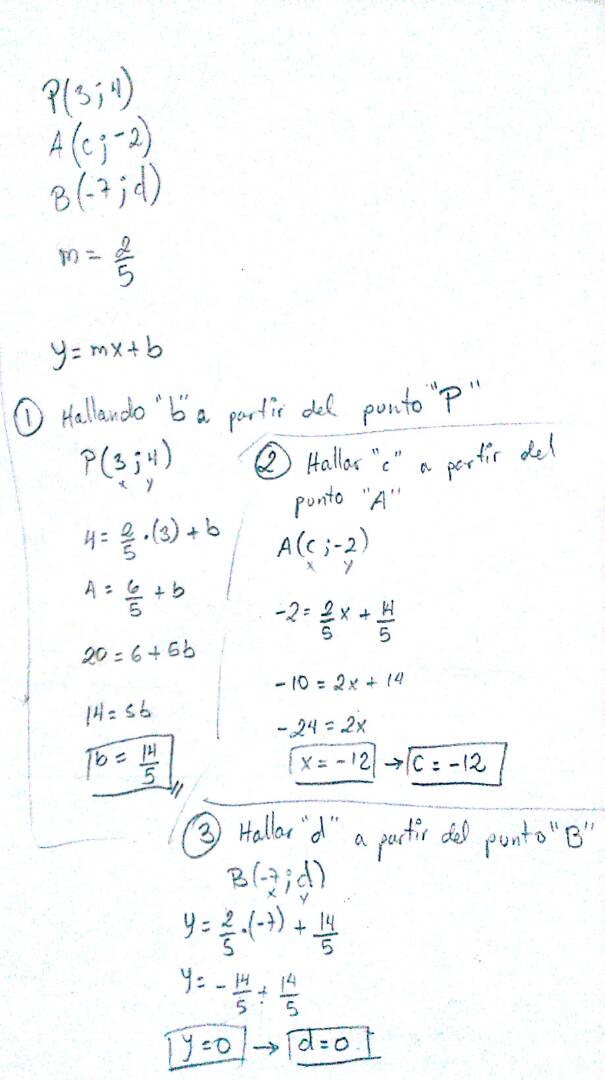 P(3;4)
A(c;-2)
B(-7;d)
m = 2/5
y = mx + b
① Hallando "b" a partir del punto "P"
P(3;4)
x y
4 = 2/5 . (3) + b
4 = 6/5 + b
20 = 6 + 5b
14 = 5b
b = 14/5 //
② Hallar "c" a partir del
punto "A"
A(c;-2)
x y
-2 = 2/5 x + 14/5
-10 = 2x + 14
-24 = 2x
x = -12 → c = -12
③ Hallar "d" a partir del punto "B"
B(-7;d)
x y
y = 2/5 . (-7) + 14/5
y = - 14/5 + 14/5
y = 0 → d = 0